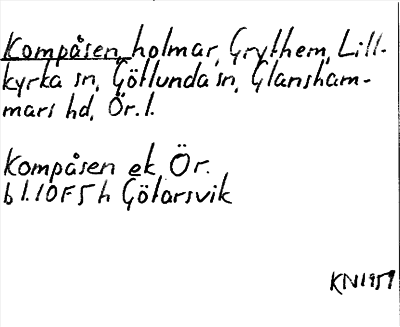 Kompåsen, holmar, Grythem, Lill-
kyrka sn, Götlunda sn, Glansham-
mars hd, Ör. l.
Kompåsen ek, Ör.
bl. 10F5h Götarsvik
KN1959